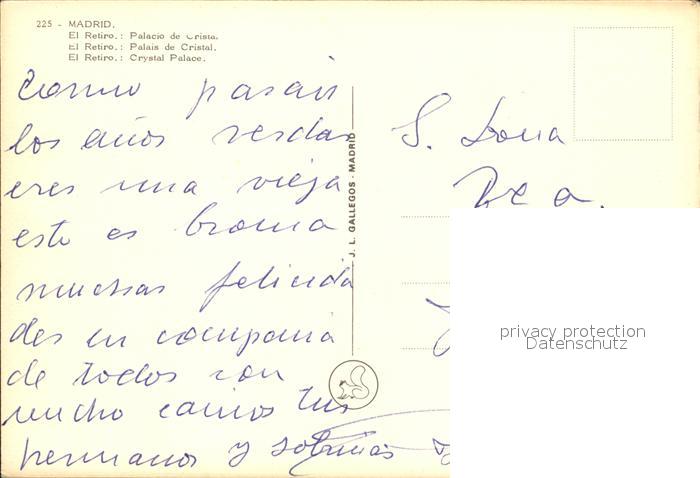 225 - MADRID.
El Retiro.: Palacio de Cristal.
El Retiro.: Palais de Cristal.
El Retiro.: Crystal Palace.
Como pasan
los años verdad
eres una vieja
esto es broma
muchas felicida
des en compania
de todos con
mucho cariños tus
hermanos y sobrinos
J. L. GALLEGOS - MADRID
S. Dona
privacy protection
Datenschutz